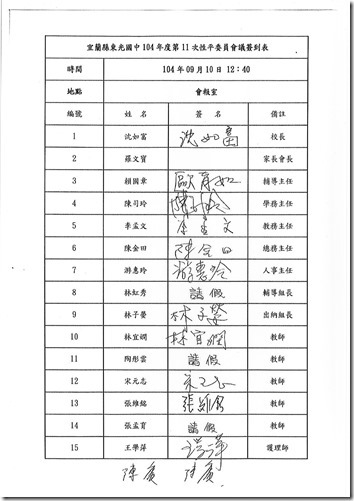 宜蘭縣東光國中 104 年度第 11 次性平委員會議簽到表
時間 104 年 09 月 10 日 12：40
地點 會報室
編號 姓名 簽名 備註
1 沈如富 沈如富 校長
2 羅文寶 家長會長
3 賴國章 輔導主任
4 陳司玲 學務主任
5 李孟文 李孟文 教務主任
6 陳金田 陳金田 總務主任
7 游惠玲 游惠玲 人事主任
8 林虹秀 請假 輔導組長
9 林子蔓 出納組長
10 林宜嫻 林宜嫻 教師
11 陶彤雲 請假 教師
12 宋元志 宋元志 教師
13 張維銘 張維銘 教師
14 張孟育 請假 教師
15 王學萍 護理師